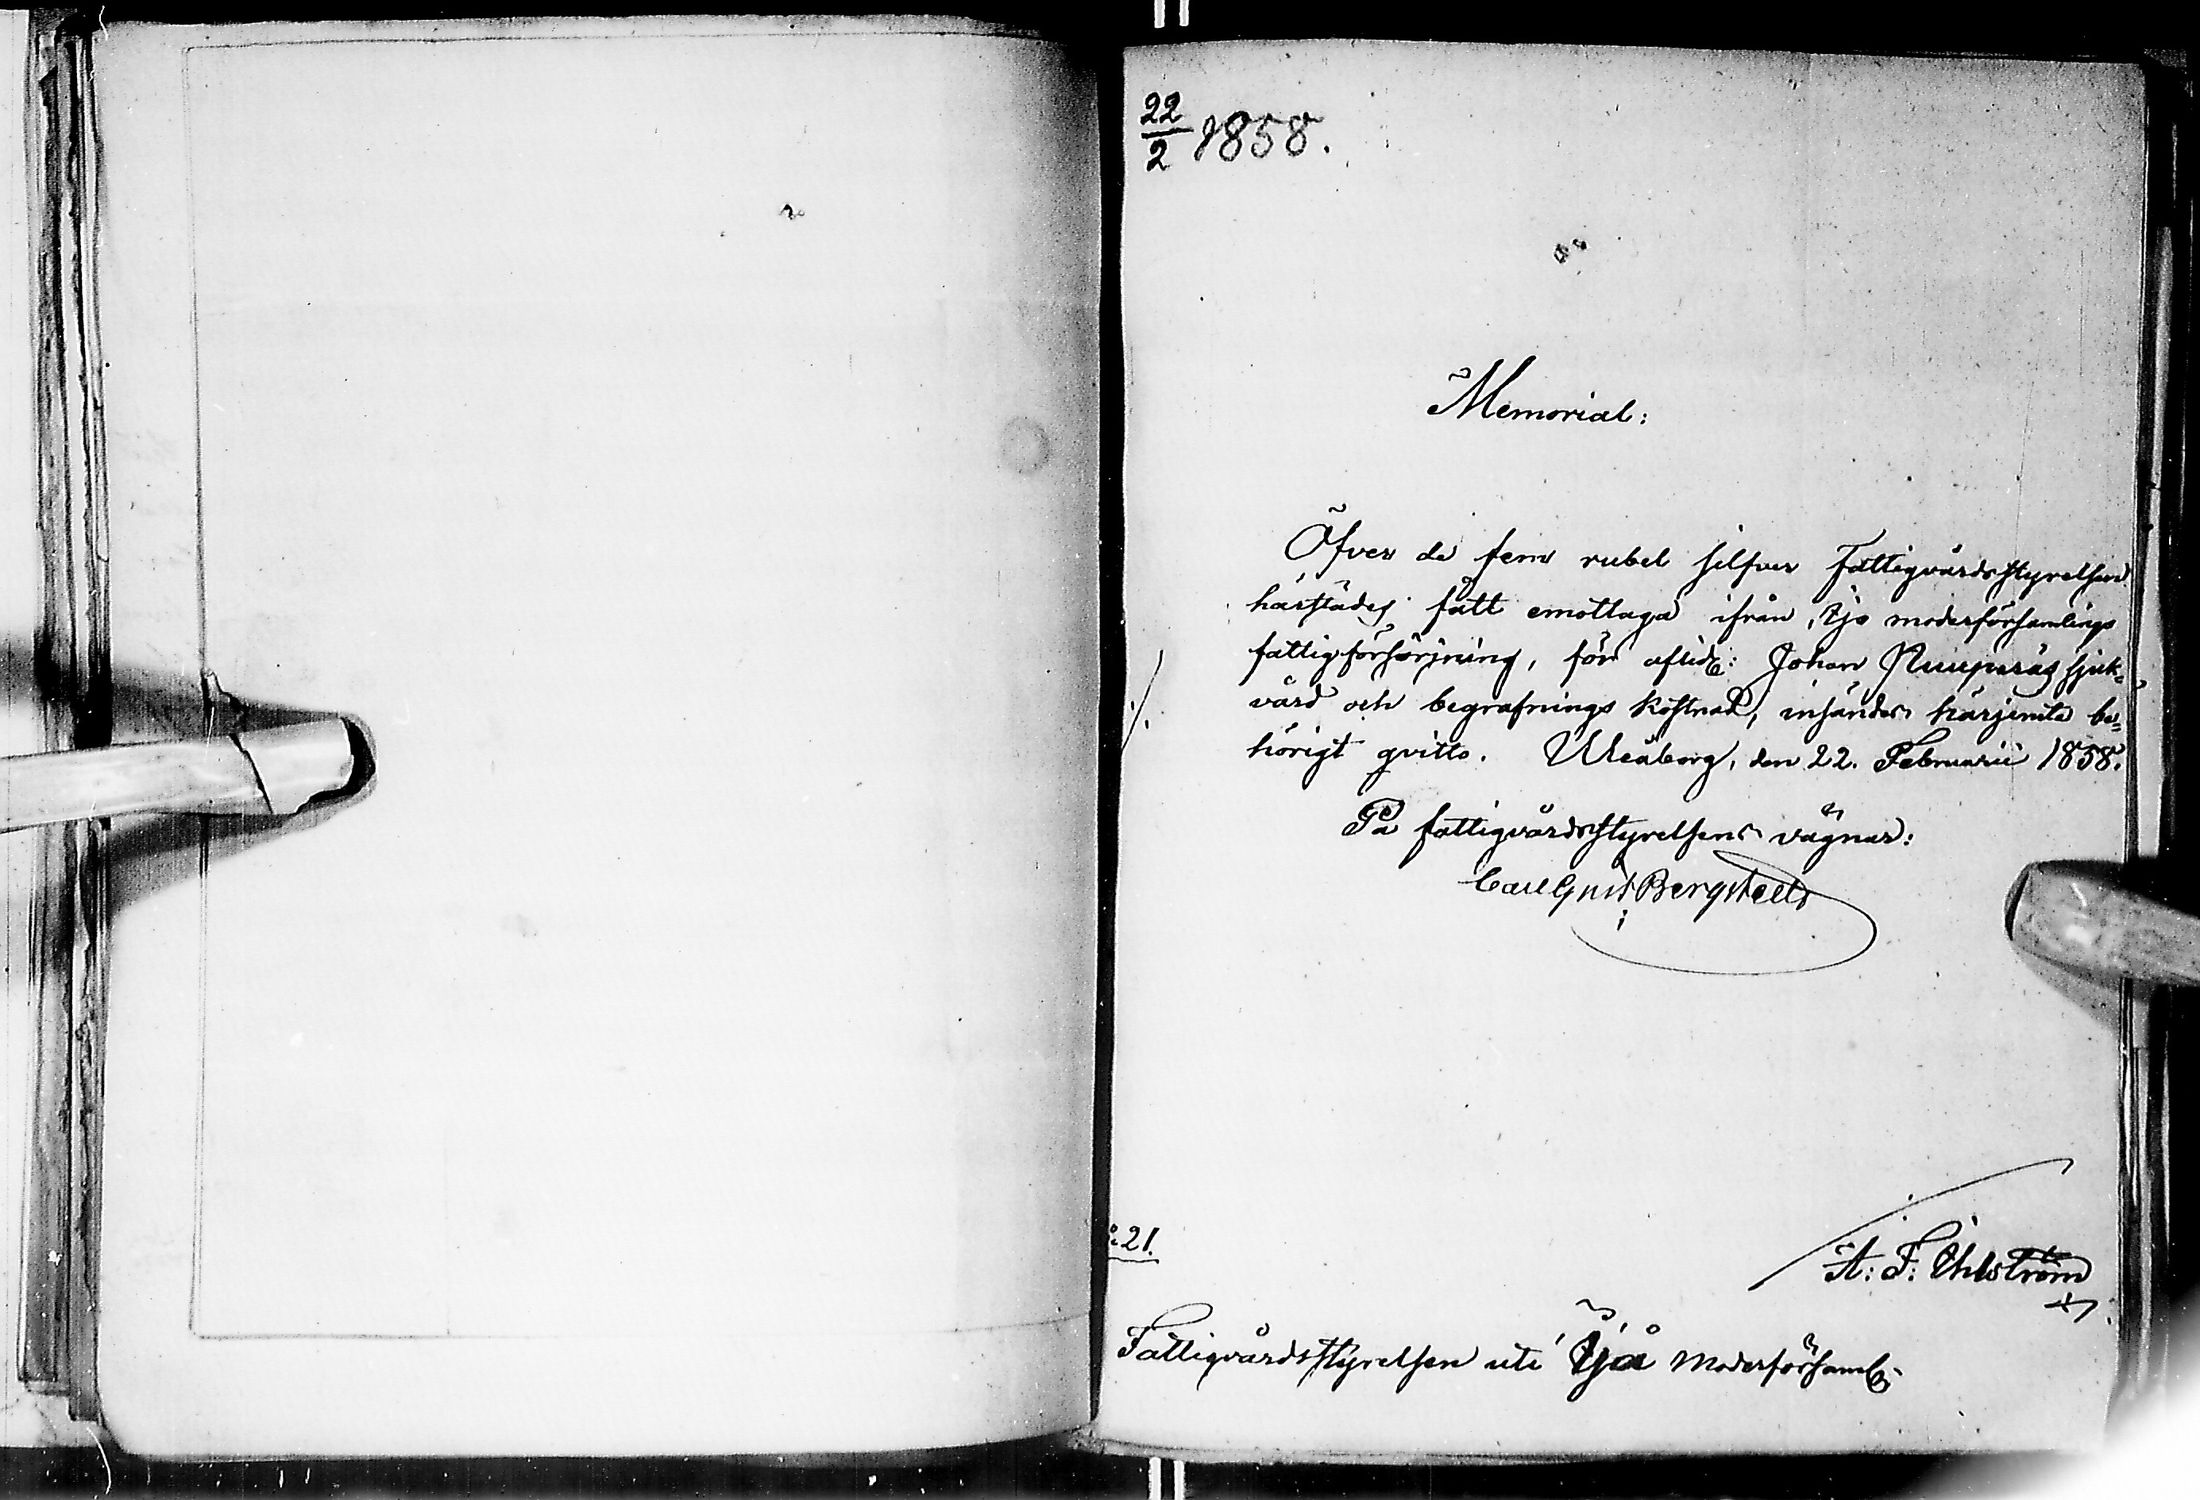 22/2 1858.
Memorial:
Öfver de fem rubel silfver Fattigvårdsstyrelsen
härstädes fått emottaga ifrån Ijo moderförsamlings
fattigförsörjning, för aflidc: Johan sjuk=
vård och begrafnings kostnad, insändes härjemte be=
hörigt qvitto. Uleåborg, den 22. Februarii 1858.
På fattigvårdsstyrelsens vägnar:
Carl Gust Bergstedt
A: F: Öhlström
:21.
Fattigvårdsstyrelsen uti Ijå moderförsaml: